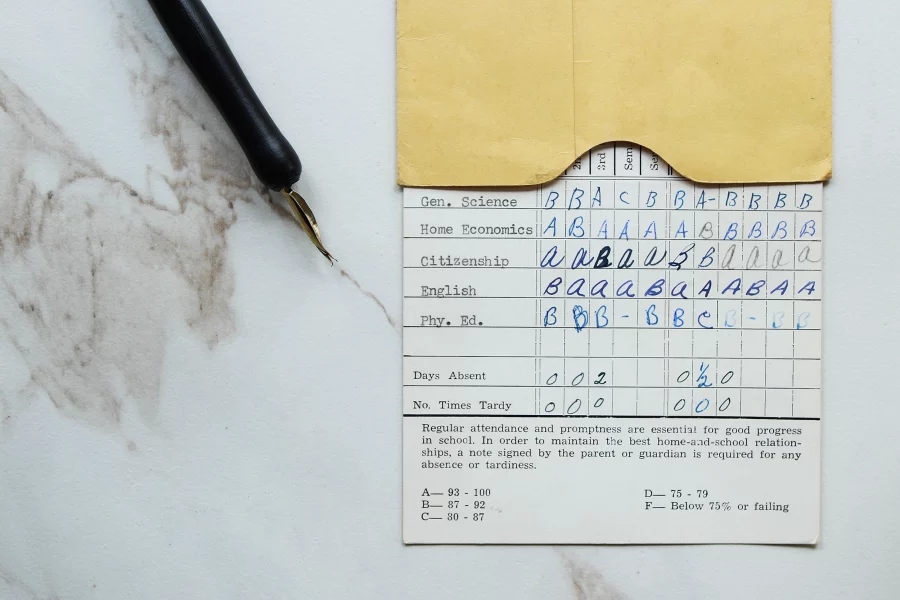 2n 3rd Sem Se
Gen. Science B B A C B B A- B B B B
Home Economics A B A A A A B B B B B
Citizenship a a B a a B B a a a a
English B a a a B a A A B A A
Phy. Ed. B B B - B B C B - B B
Days Absent 0 0 2 0 ½ 0
No. Times Tardy 0 0 0 0 0 0
Regular attendance and promptness are essential for good progress
in school. In order to maintain the best home-and-school relation-
ships, a note signed by the parent or guardian is required for any
absence or tardiness.
A— 93 - 100 D— 75 - 79
B— 87 - 92 F— Below 75% or failing
C— 80 - 87